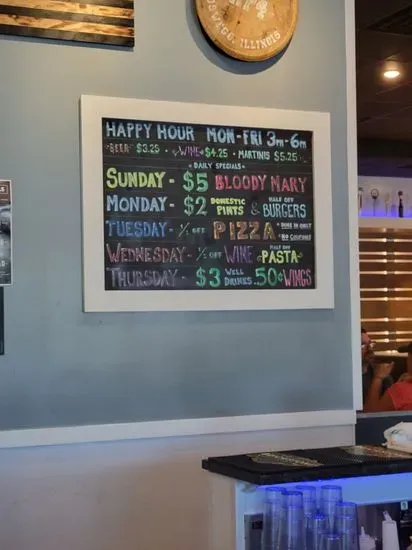 OSWEGO, ILLINOIS
HAPPY HOUR MON-FRI 3PM-6PM
BEER $3.25 • WINE $4.25 • MARTINIS $5.25
• DAILY SPECIALS •
SUNDAY - $5 BLOODY MARY
MONDAY - $2 DOMESTIC PINTS & HALF OFF BURGERS
TUESDAY - 1/2 OFF PIZZA DINE IN ONLY NO COUPONS
WEDNESDAY - 1/2 OFF WINE HALF OFF PASTA
THURSDAY - $3 WELL DRINKS .. 50¢ WINGS